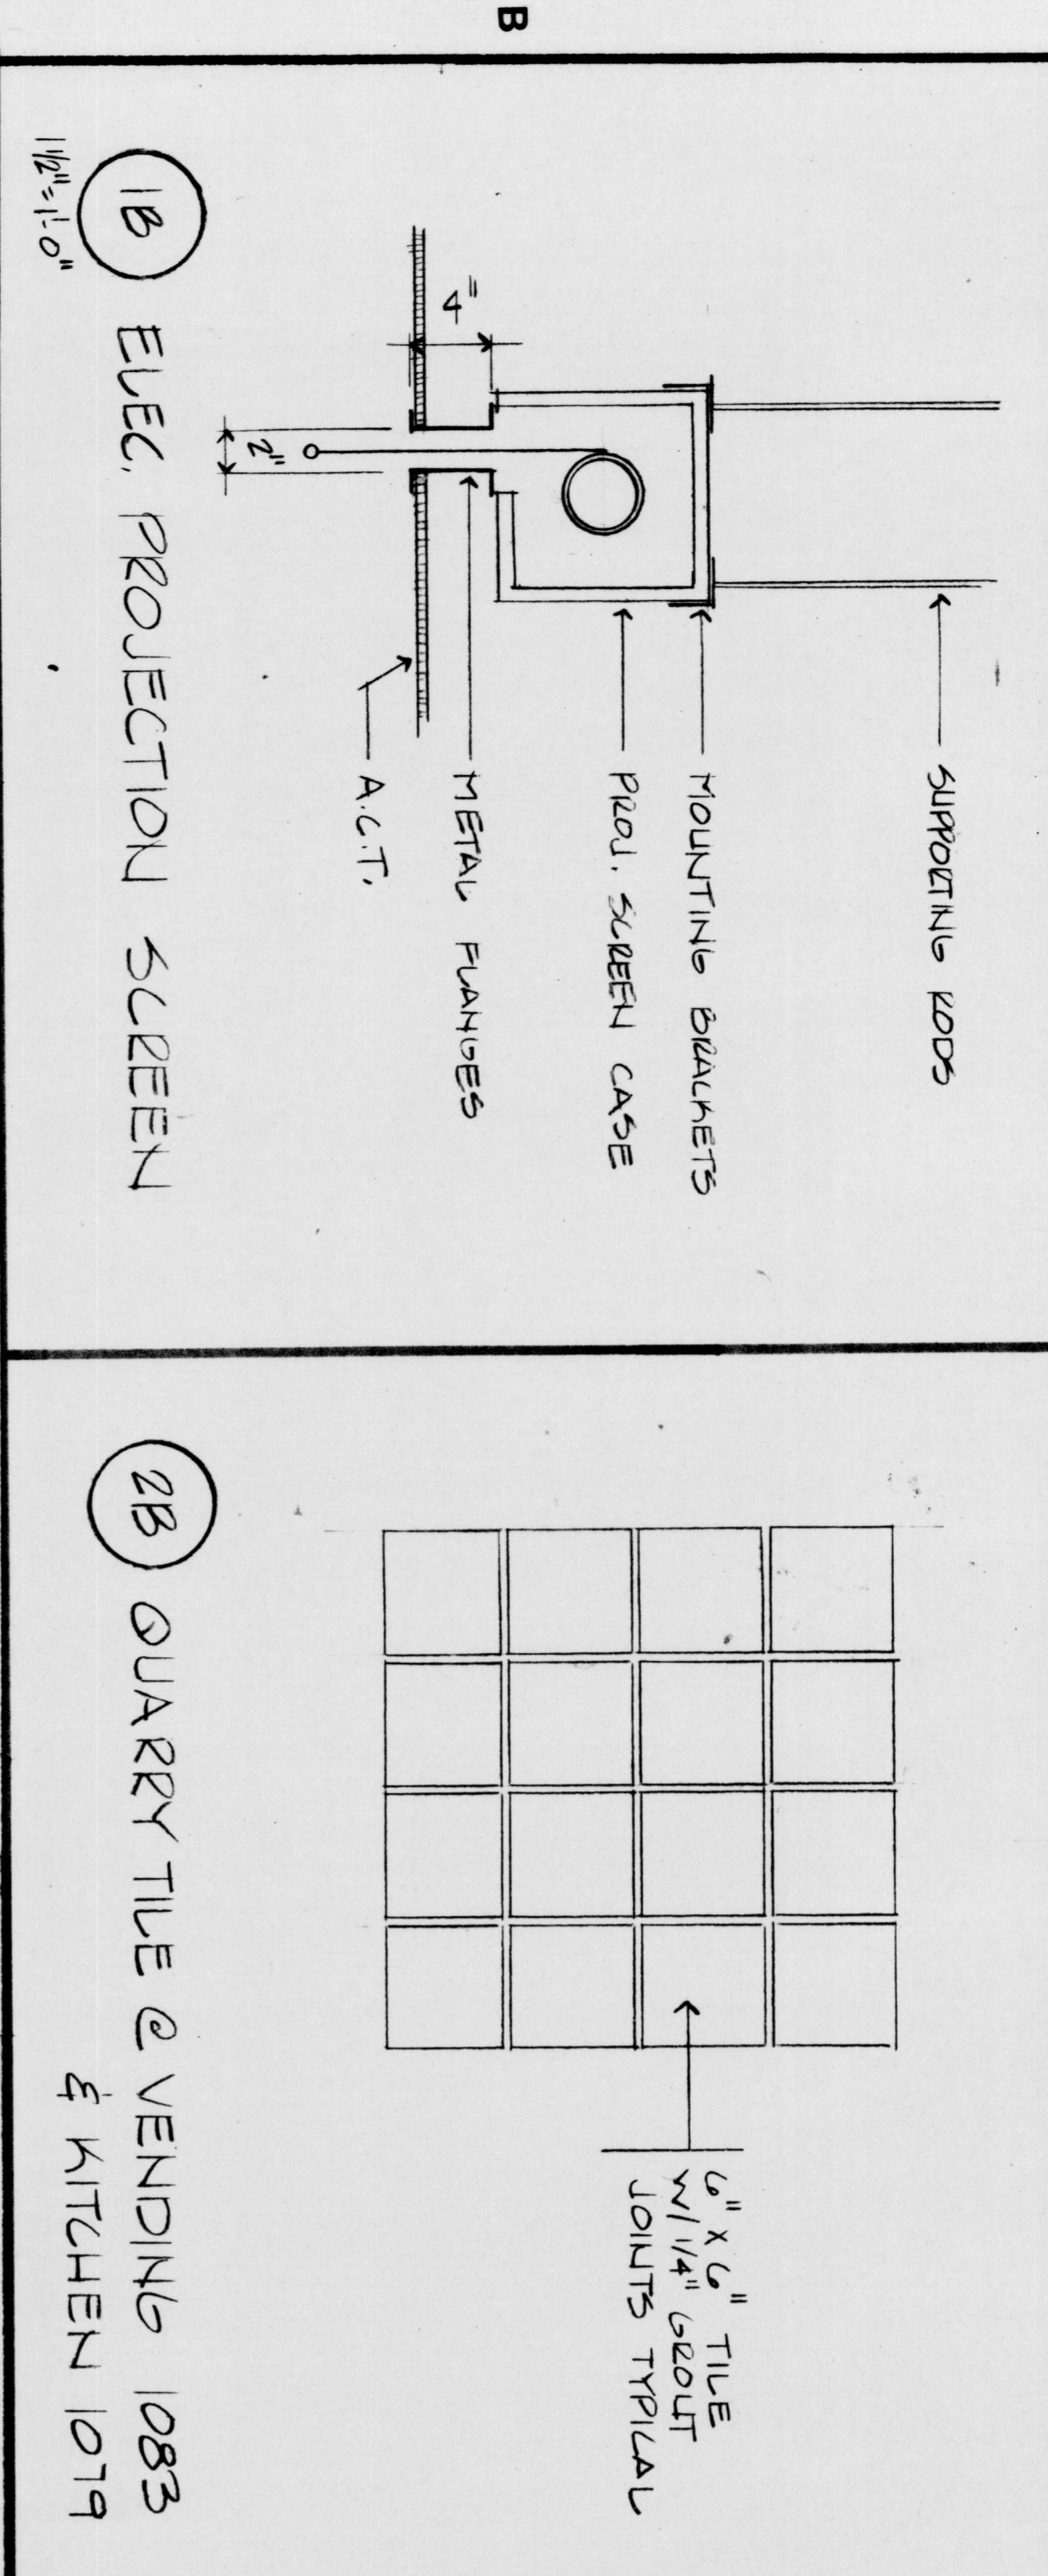 B
SUPPORTING RODS
MOUNTING BRACKETS
PROJ. SCREEN CASE
4"
METAL FLANGES
A.C.T.
2"
1B ELEC. PROJECTION SCREEN
1 1/2" = 1'-0"
6" X 6" TILE
W/ 1/4" GROUT
JOINTS TYPICAL
2B QUARRY TILE @ VENDING 1083
& KITCHEN 1079